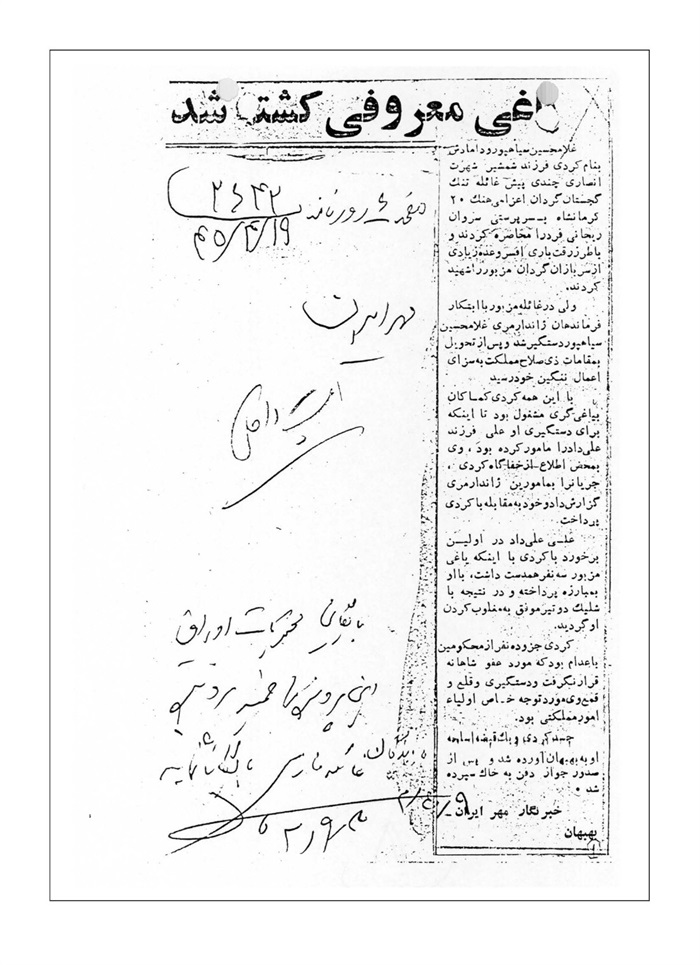 یاغی معروفی کشته شد
غلامحسین سیاهپور و دامادش
بنام کردی فرزند شمشیر شهرت
انصاری چندی پیش غائله تنک
گجستان گردان اعزامی هنك ۲۰
کرمانشاه بسرپرستی سروان
ریحانی فرد را محاصره کردند و
باطرز رقت باری افسر و عده زیادی
از سربازان گردان مزبور را شهید
کردند.
ولی در غائله مزبور با ابتکار
فرماندهان ژاندارمری غلامحسین
سیاهپور دستگیر شد و پس از تحویل
بمقامات ذی صلاح مملکت به سزای
اعمال ننگین خود رسید
با این همه کردی کماکان
بیاغی گری مشغول بود تا اینکه
برای دستگیری او علی فرزند
علی داد را مامور کرده بود ، وی
بمحض اطلاع از خفا گاه کردی ،
جریان را بمامورین ژاندارمری
گزارش داد و خود به مقابله با کردی
پرداخت
علی علی داد در اولین
برخورد با کردی با اینکه یاغی
مزبور سه نفر همدست داشت، با او
بمبارزه پرداخته و در نتیجه با
شلیك دو تیر موفق به مغلوب کردن
او گردید.
کردی جزو ده نفر از محکومین
باعدام بود که مورد عفو شاهانه
قرار نگرفت و دستگیری و قلع و
قمع وی مورد توجه خاص اولیاء
امور مملکتی بود.
جسد کردی و یك قبضه اسلحه
او به بهبهان آورده شد و پس از
صدور جواز دفن به خاك سپرده
شد .
خبرنگار مهر ایران -
بهبهان
صفحه ۴ روزنامه ۲۶۴۲
۴۵/۴/۱۹
مهر ایران